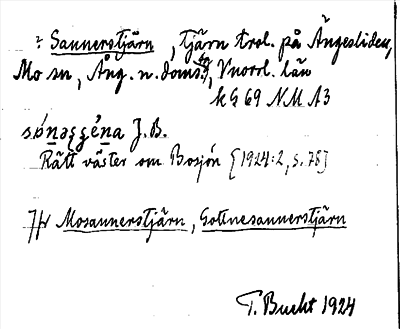 ? Sannerstjärn, tjärn trol. på Ängesliden,
Mo sn, Ång. n. doms., Vnorrl. län
k G 69 NM A3
J.B.
Rätt väster om Bosjön [1924:2, s. 78]
Jfr Mosannerstjärn, Gottnesannerstjärn
T. Bucht 1924